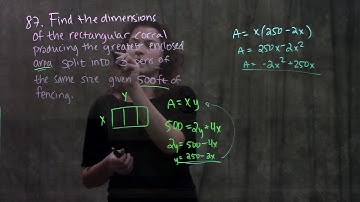 87. Find the dimensions
of the rectangular corral
producing the greatest enclosed
area split into 3 pens of
the same size given 500 ft of
fencing.
Y
X
A = x y
500 = 2y + 4x
2y = 500 - 4x
y = 250 - 2x
A = x(250 - 2x)
A = 250x - 2x²
A = -2x² + 250x